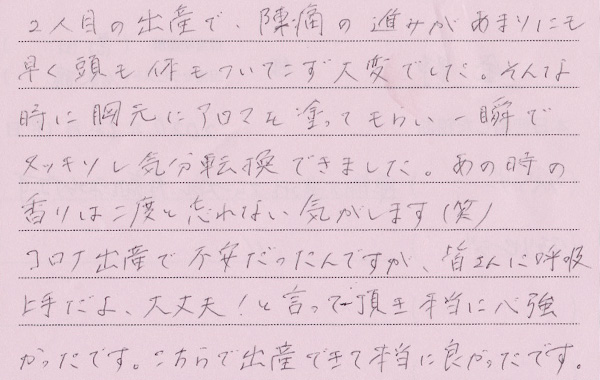 2人目の出産で、陣痛の進みがあまりにも
早く頭も体もついてこず大変でした。そんな
時に胸元にアロマを塗ってもらい一瞬で
スッキリし気分転換できました。あの時の
香りは二度と忘れない気がします(笑)
コロナ出産で不安だったんですが、皆さんに呼吸
上手だよ、大丈夫!と言って頂き本当に心強
かったです。こちらで出産できて本当に良かったです。